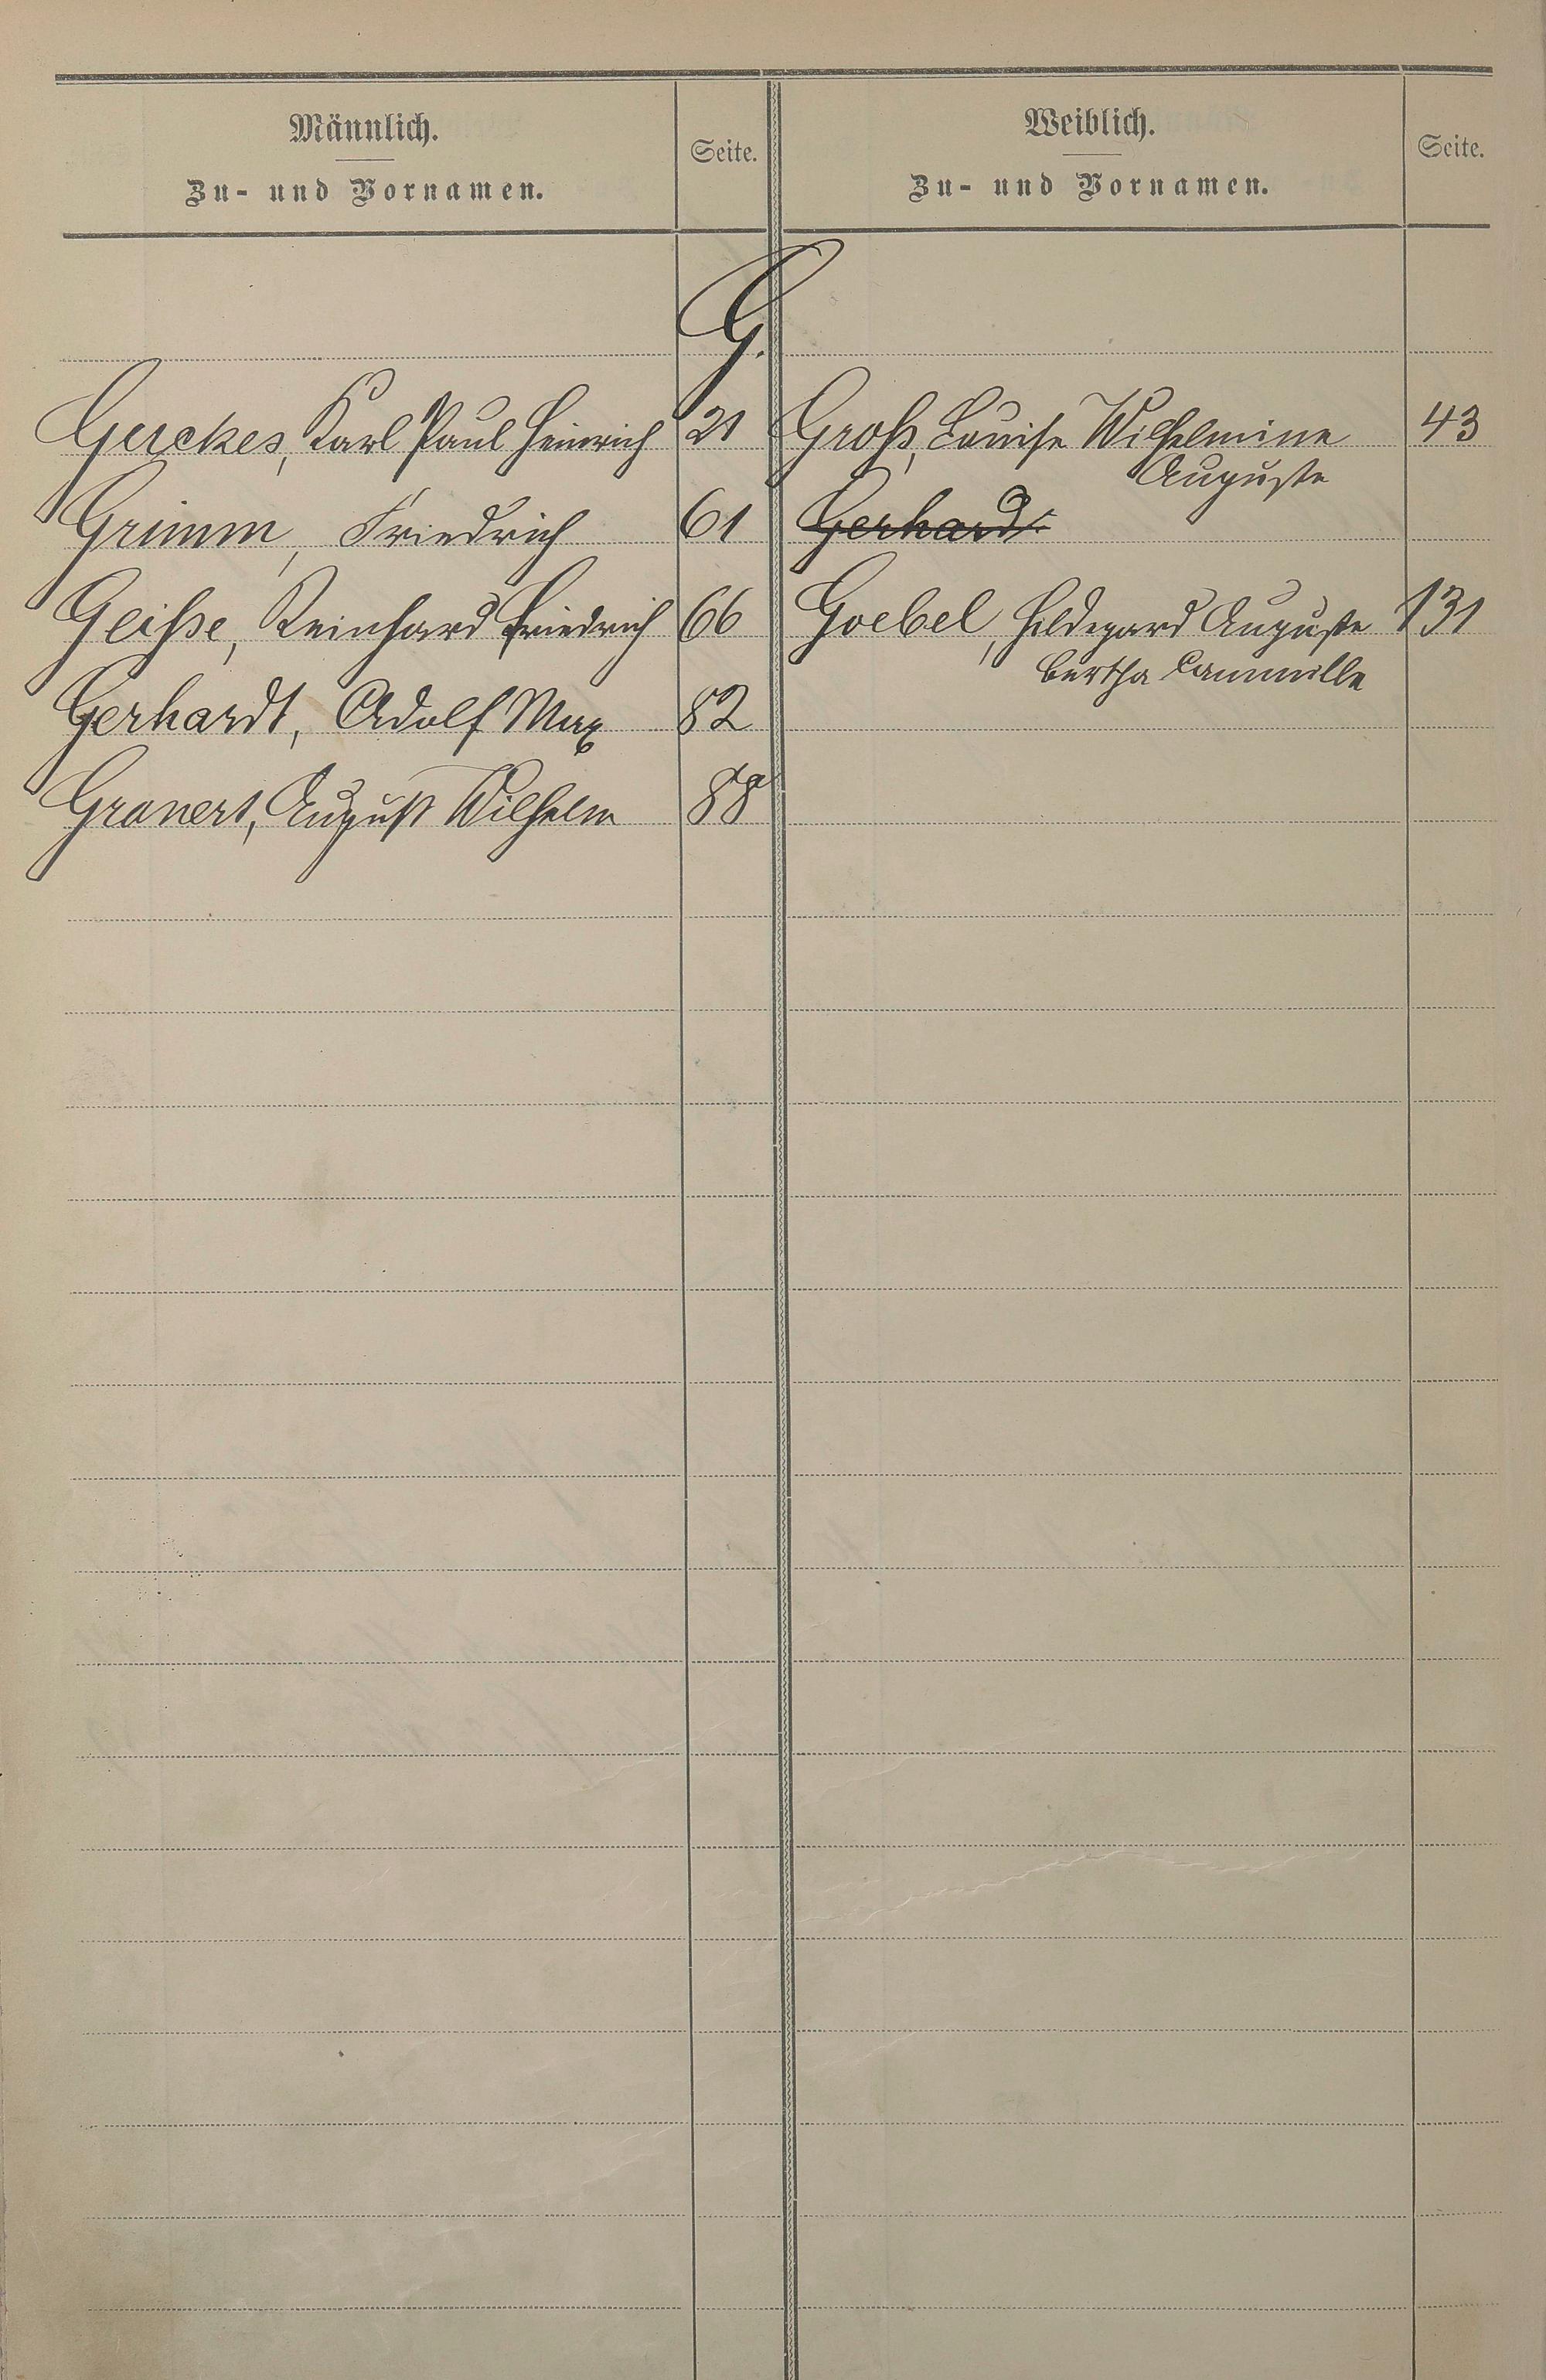 Männlich.
Zu- und Vornamen.
Seite.
Weiblich.
Zu- und Vornamen.
Seite.
G.
Gerckes, Karl Paul Heinrich 21
Grimm, Friedrich 61
Geiße, Reinhard Friedrich 66
Gerhardt, Adolf Max 82
Granert, August Wilhelm 88
Groß, Louise Wilhelmine 43
Auguste
Gerhardt
Goebel, Hildegard Auguste 131
Bertha Cammille